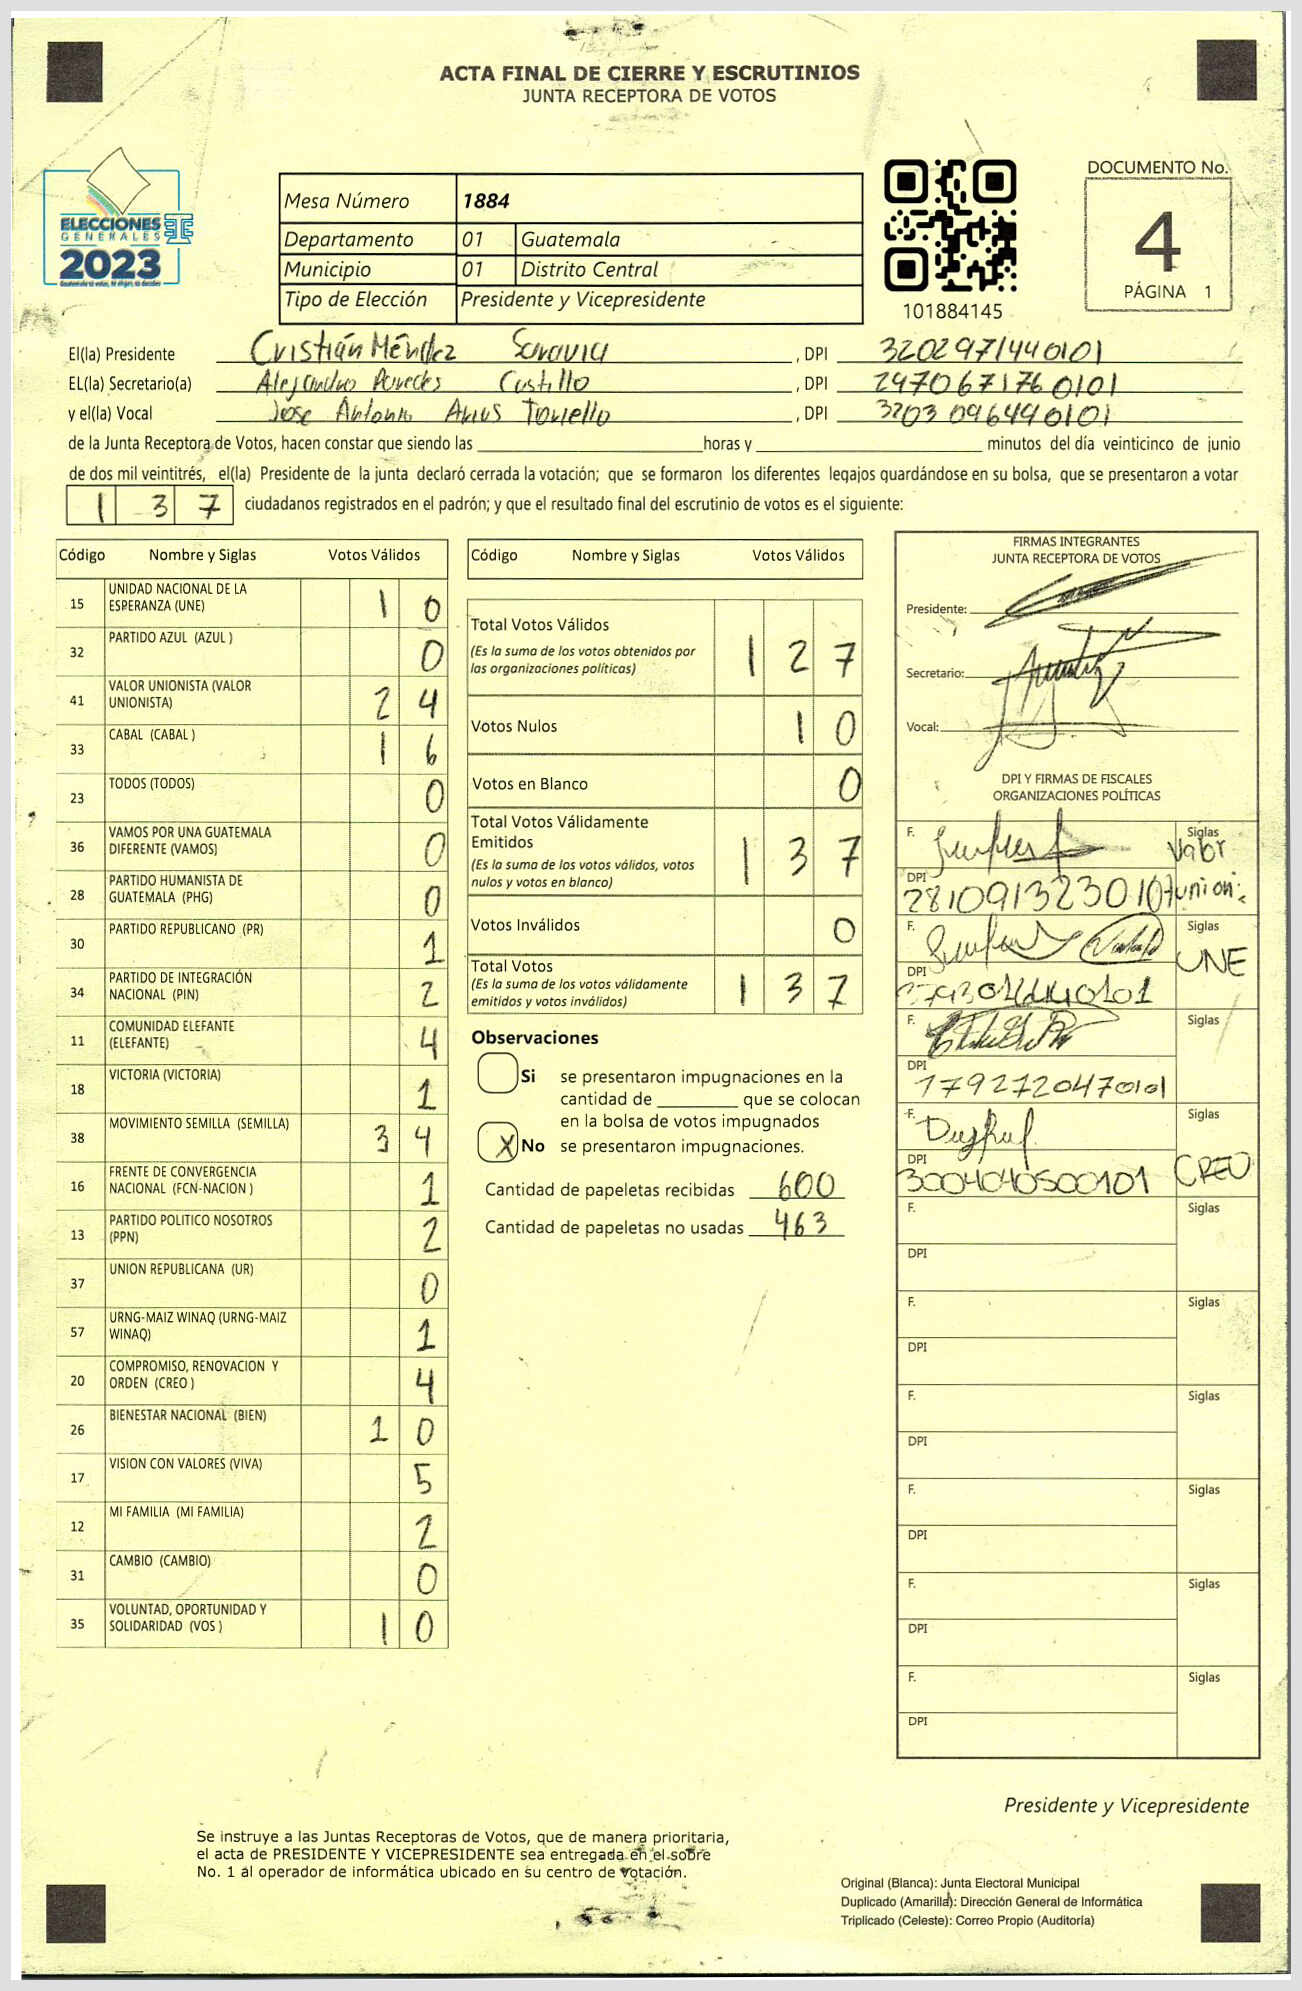 ACTA FINAL DE CIERRE Y ESCRUTINIOS
JUNTA RECEPTORA DE VOTOS
ELECCIONES
GENERALES
2023
Mesa Número 1884
Departamento 01 Guatemala
Municipio 01 Distrito Central
Tipo de Elección Presidente y Vicepresidente
101884145
DOCUMENTO No.
4
PÁGINA 1
El(la) Presidente Cristián Méndez Saravia , DPI 3202971440101
EL(la) Secretario(a) Alejandro Paredes Castillo , DPI 2970671760101
y el(la) Vocal Jose Antonio Arias Toriello , DPI 3203096490101
de la Junta Receptora de Votos, hacen constar que siendo las horas y minutos del día veinticinco de junio
de dos mil veintitrés, el(la) Presidente de la junta declaró cerrada la votación; que se formaron los diferentes legajos quardándose en su bolsa, que se presentaron a votar
1 3 7 ciudadanos registrados en el padrón; y que el resultado final del escrutinio de votos es el siguiente:
Código Nombre y Siglas Votos Válidos
15 UNIDAD NACIONAL DE LA ESPERANZA (UNE) 1 0
32 PARTIDO AZUL (AZUL ) 0
41 VALOR UNIONISTA (VALOR UNIONISTA) 2 4
33 CABAL (CABAL ) 1 6
23 TODOS (TODOS) 0
36 VAMOS POR UNA GUATEMALA DIFERENTE (VAMOS) 0
28 PARTIDO HUMANISTA DE GUATEMALA (PHG) 0
30 PARTIDO REPUBLICANO (PR) 1
34 PARTIDO DE INTEGRACIÓN NACIONAL (PIN) 2
11 COMUNIDAD ELEFANTE (ELEFANTE) 4
18 VICTORIA (VICTORIA) 1
38 MOVIMIENTO SEMILLA (SEMILLA) 3 4
16 FRENTE DE CONVERGENCIA NACIONAL (FCN-NACION ) 1
13 PARTIDO POLITICO NOSOTROS (PPN) 2
37 UNION REPUBLICANA (UR) 0
57 URNG-MAIZ WINAQ (URNG-MAIZ WINAQ) 1
20 COMPROMISO, RENOVACION Y ORDEN (CREO ) 4
26 BIENESTAR NACIONAL (BIEN) 1 0
17 VISION CON VALORES (VIVA) 5
12 MI FAMILIA (MI FAMILIA) 2
31 CAMBIO (CAMBIO) 0
35 VOLUNTAD, OPORTUNIDAD Y SOLIDARIDAD (VOS ) 1 0
Código Nombre y Siglas Votos Válidos
Total Votos Válidos 1 2 7
(Es la suma de los votos obtenidos por
las organizaciones políticas)
Votos Nulos 1 0
Votos en Blanco 0
Total Votos Válidamente
Emitidos 1 3 7
(Es la suma de los votos válidos, votos
nulos y votos en blanco)
Votos Inválidos 0
Total Votos 1 3 7
(Es la suma de los votos válidamente
emitidos y votos inválidos)
Observaciones
Si se presentaron impugnaciones en la
cantidad de que se colocan
en la bolsa de votos impugnados
X No se presentaron impugnaciones.
Cantidad de papeletas recibidas 600
Cantidad de papeletas no usadas 463
FIRMAS INTEGRANTES
JUNTA RECEPTORA DE VOTOS
Presidente:
Secretario:
Vocal:
DPI Y FIRMAS DE FISCALES
ORGANIZACIONES POLÍTICAS
F. Siglas Valor
DPI unioni
F. Siglas UNE
DPI
F. Siglas
DPI 1792720470101
F. Siglas
DPI 3004040500101 CREO
F. Siglas
DPI
F. Siglas
DPI
F. Siglas
DPI
F. Siglas
DPI
F. Siglas
DPI
F. Siglas
DPI
Presidente y Vicepresidente
Se instruye a las Juntas Receptoras de Votos, que de manera prioritaria,
el acta de PRESIDENTE Y VICEPRESIDENTE sea entregada en el sobre
No. 1 al operador de informática ubicado en su centro de votación.
Original (Blanca): Junta Electoral Municipal
Duplicado (Amarilla): Dirección General de Informática
Triplicado (Celeste): Correo Propio (Auditoría)